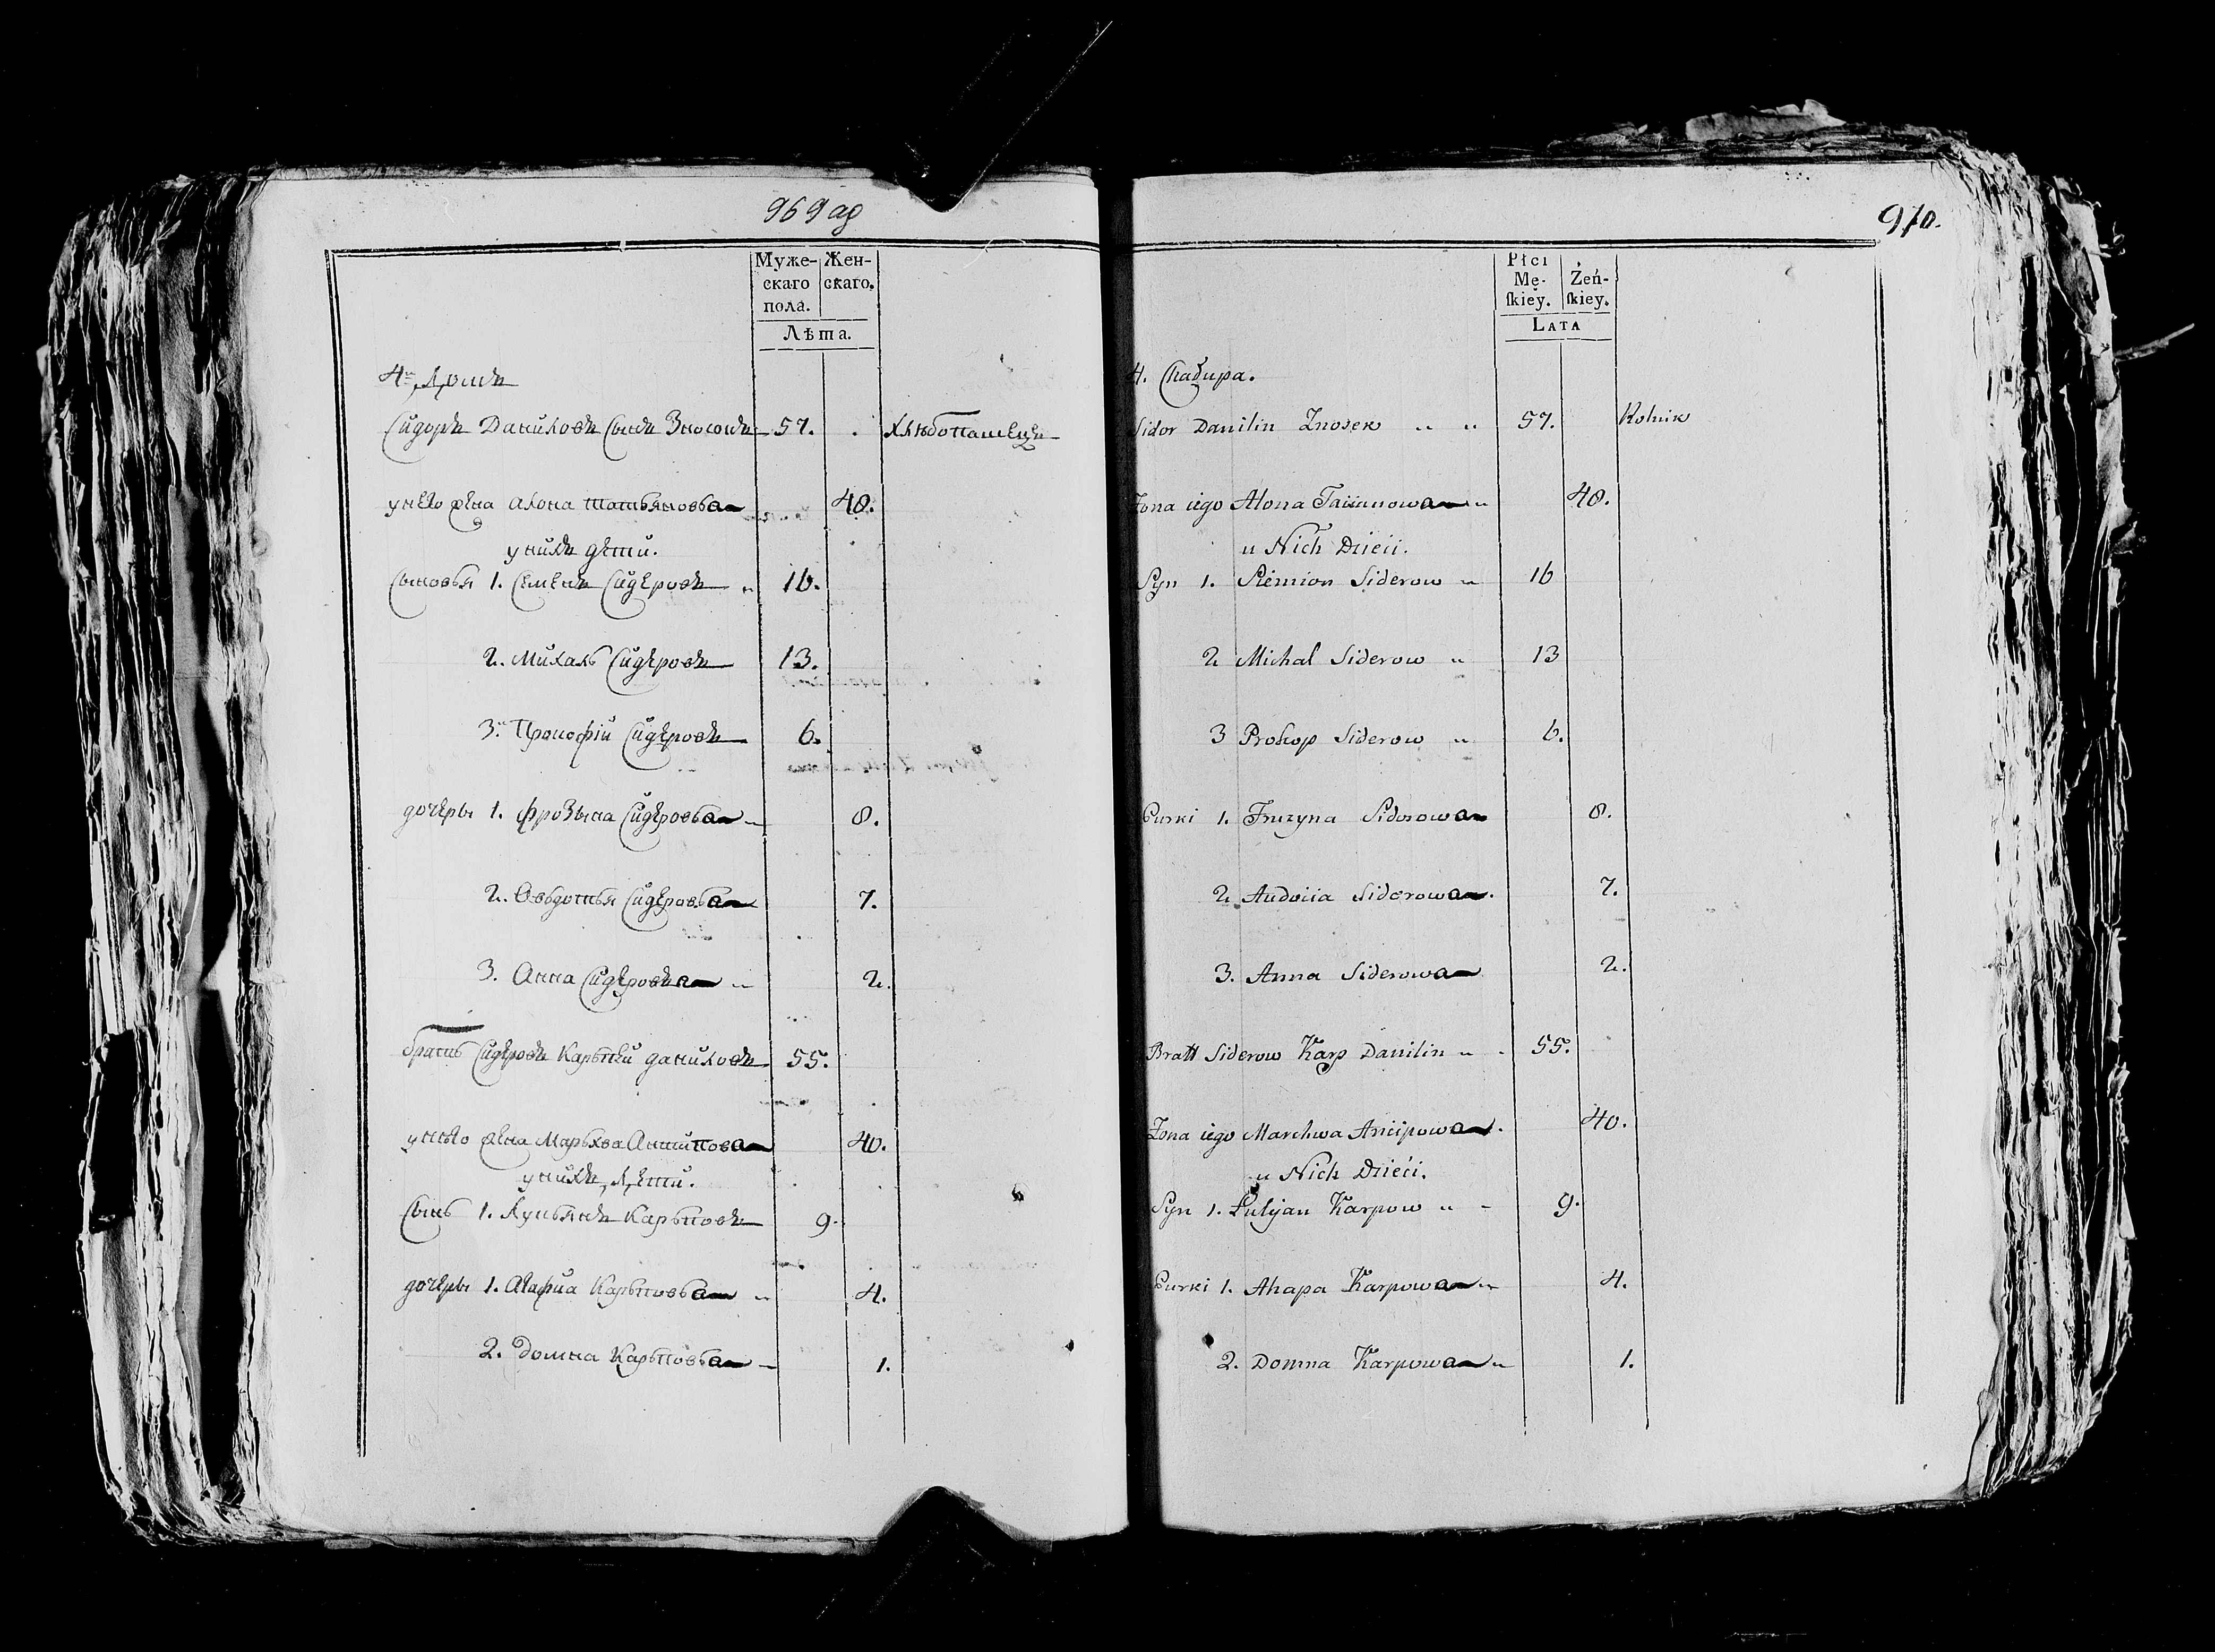 969 ад
Муже-скаго пола. Жен-скаго.
Лѣта.
4й Домъ
Сидоръ Даниловъ Сынъ Зносокъ 57. Хлѣбопашецъ
у него жена Алона Татьянова 48.
у нихъ дети.
Сыновья 1. Семенъ Сидеровъ 16.
2. Михаль Сидеровъ 13.
3й Прокофiй Сидеровъ 6.
дочеры 1. Фрозына Сидерова 8.
2. Овьдотья Сидерова 7.
3. Анна Сидерова 2.
братъ Сидеровъ Карьпей даниловъ 55.
у него жена Марьхва Антипова 40.
у нихъ Дети.
Сынъ 1. Лукьянъ Карьповъ 9.
дочеры 1. Агафиа Карьпова 4.
2. Домна Карьпова 1.
970.
Płci Mę-ſkiey. Żeń-ſkiey.
LATA
4. Chałupa.
Sidor Danilin Znosek 57. Rolnik
Żona iego Alona 48.
u Nich Dzieci.
Syn 1. Siemion Siderow 16
2 Michal Siderow 13
3 Prokop Siderow 6.
Curki 1. Fruzyna Sidorowa 8.
2 Audocia Siderowa. 7.
3. Anna Siderowa 2.
Bratt Siderow Karp Danilin 55.
Zona iego Marchwa Ancipowa. 40.
u Nich Dzieci.
Syn 1. Łukjan Karpow 9.
Curki 1. Ahapa Karpowa 4.
2. Domna Karpowa 1.